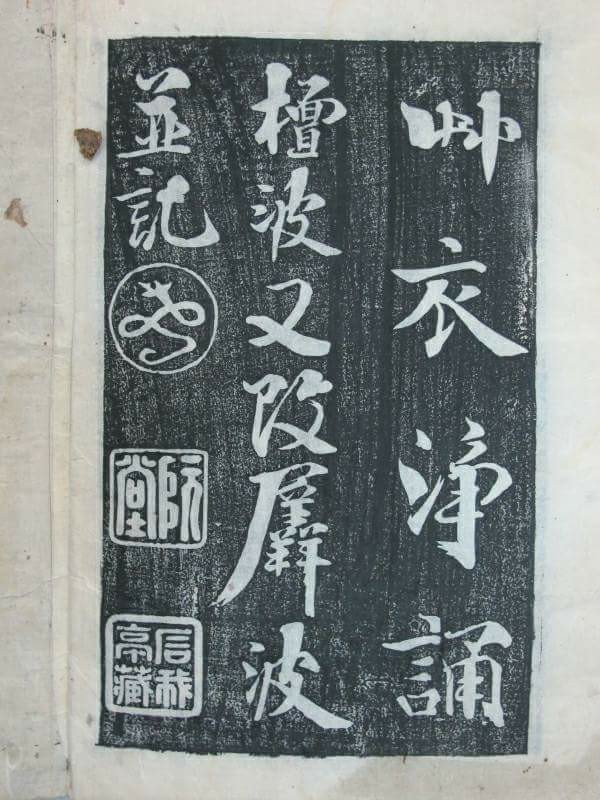 艸衣淨誦
檀波又改羼波
並記
阮堂
亭藏